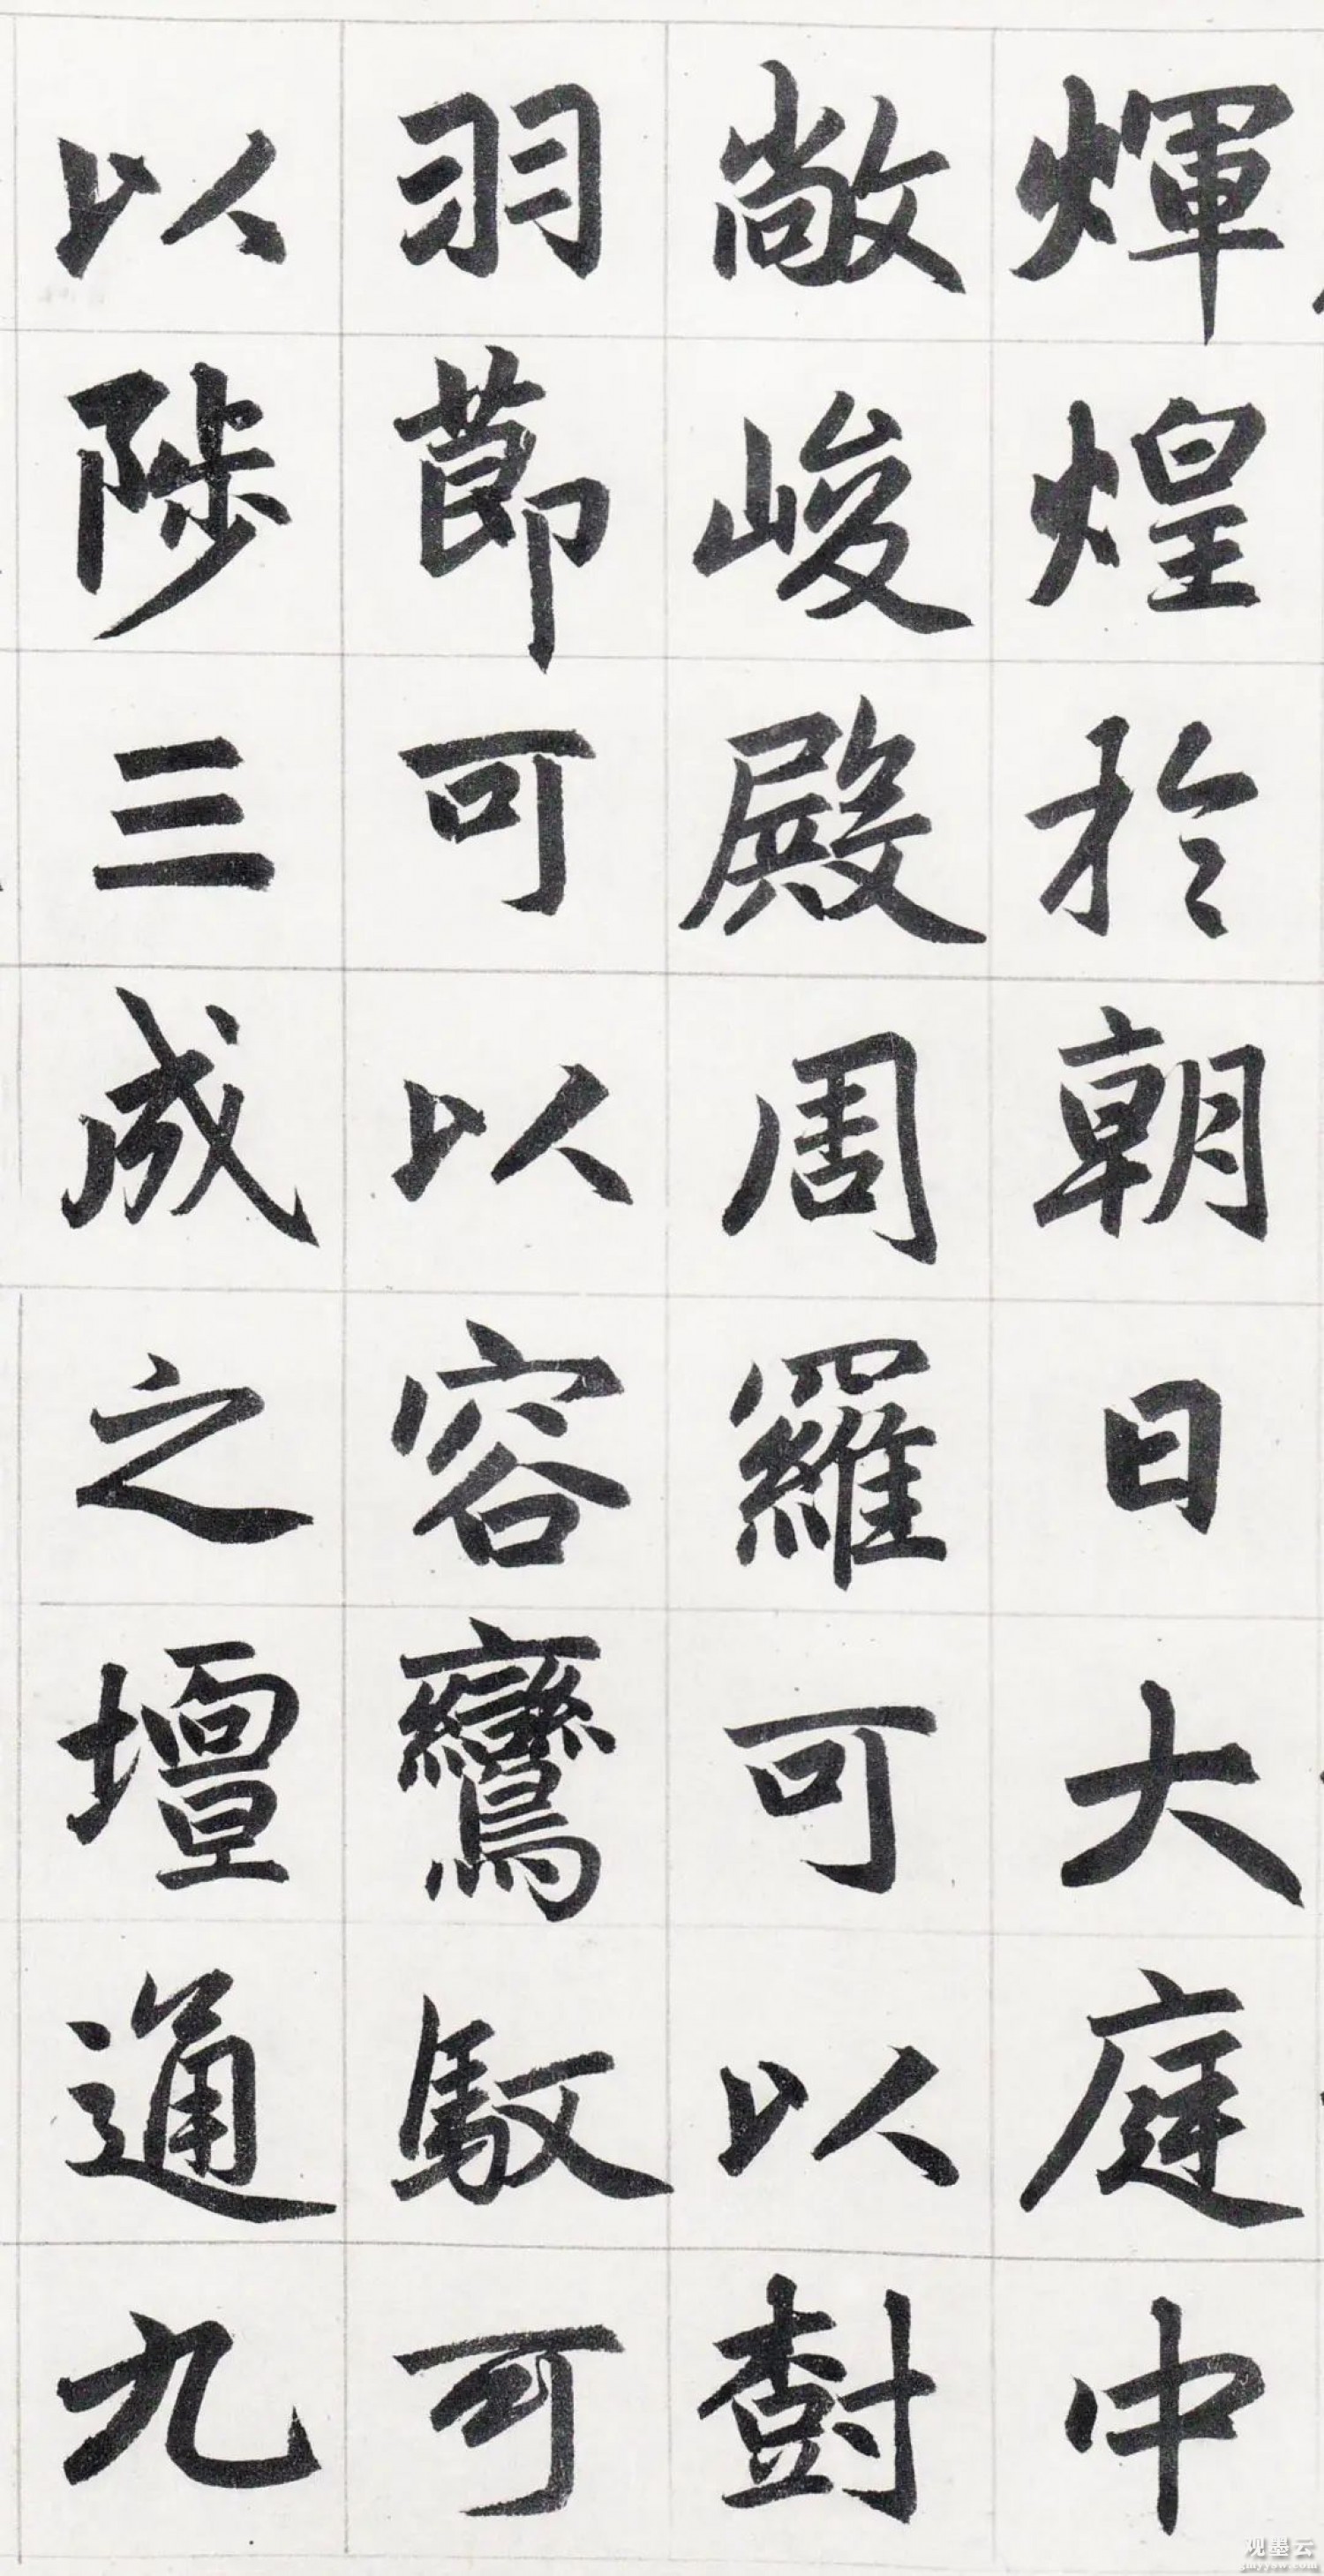 輝煌於朝日大庭中
敞峻殿周羅可以樹
羽節可以容鸞馭可
以陟三成之壇通九
观墨云